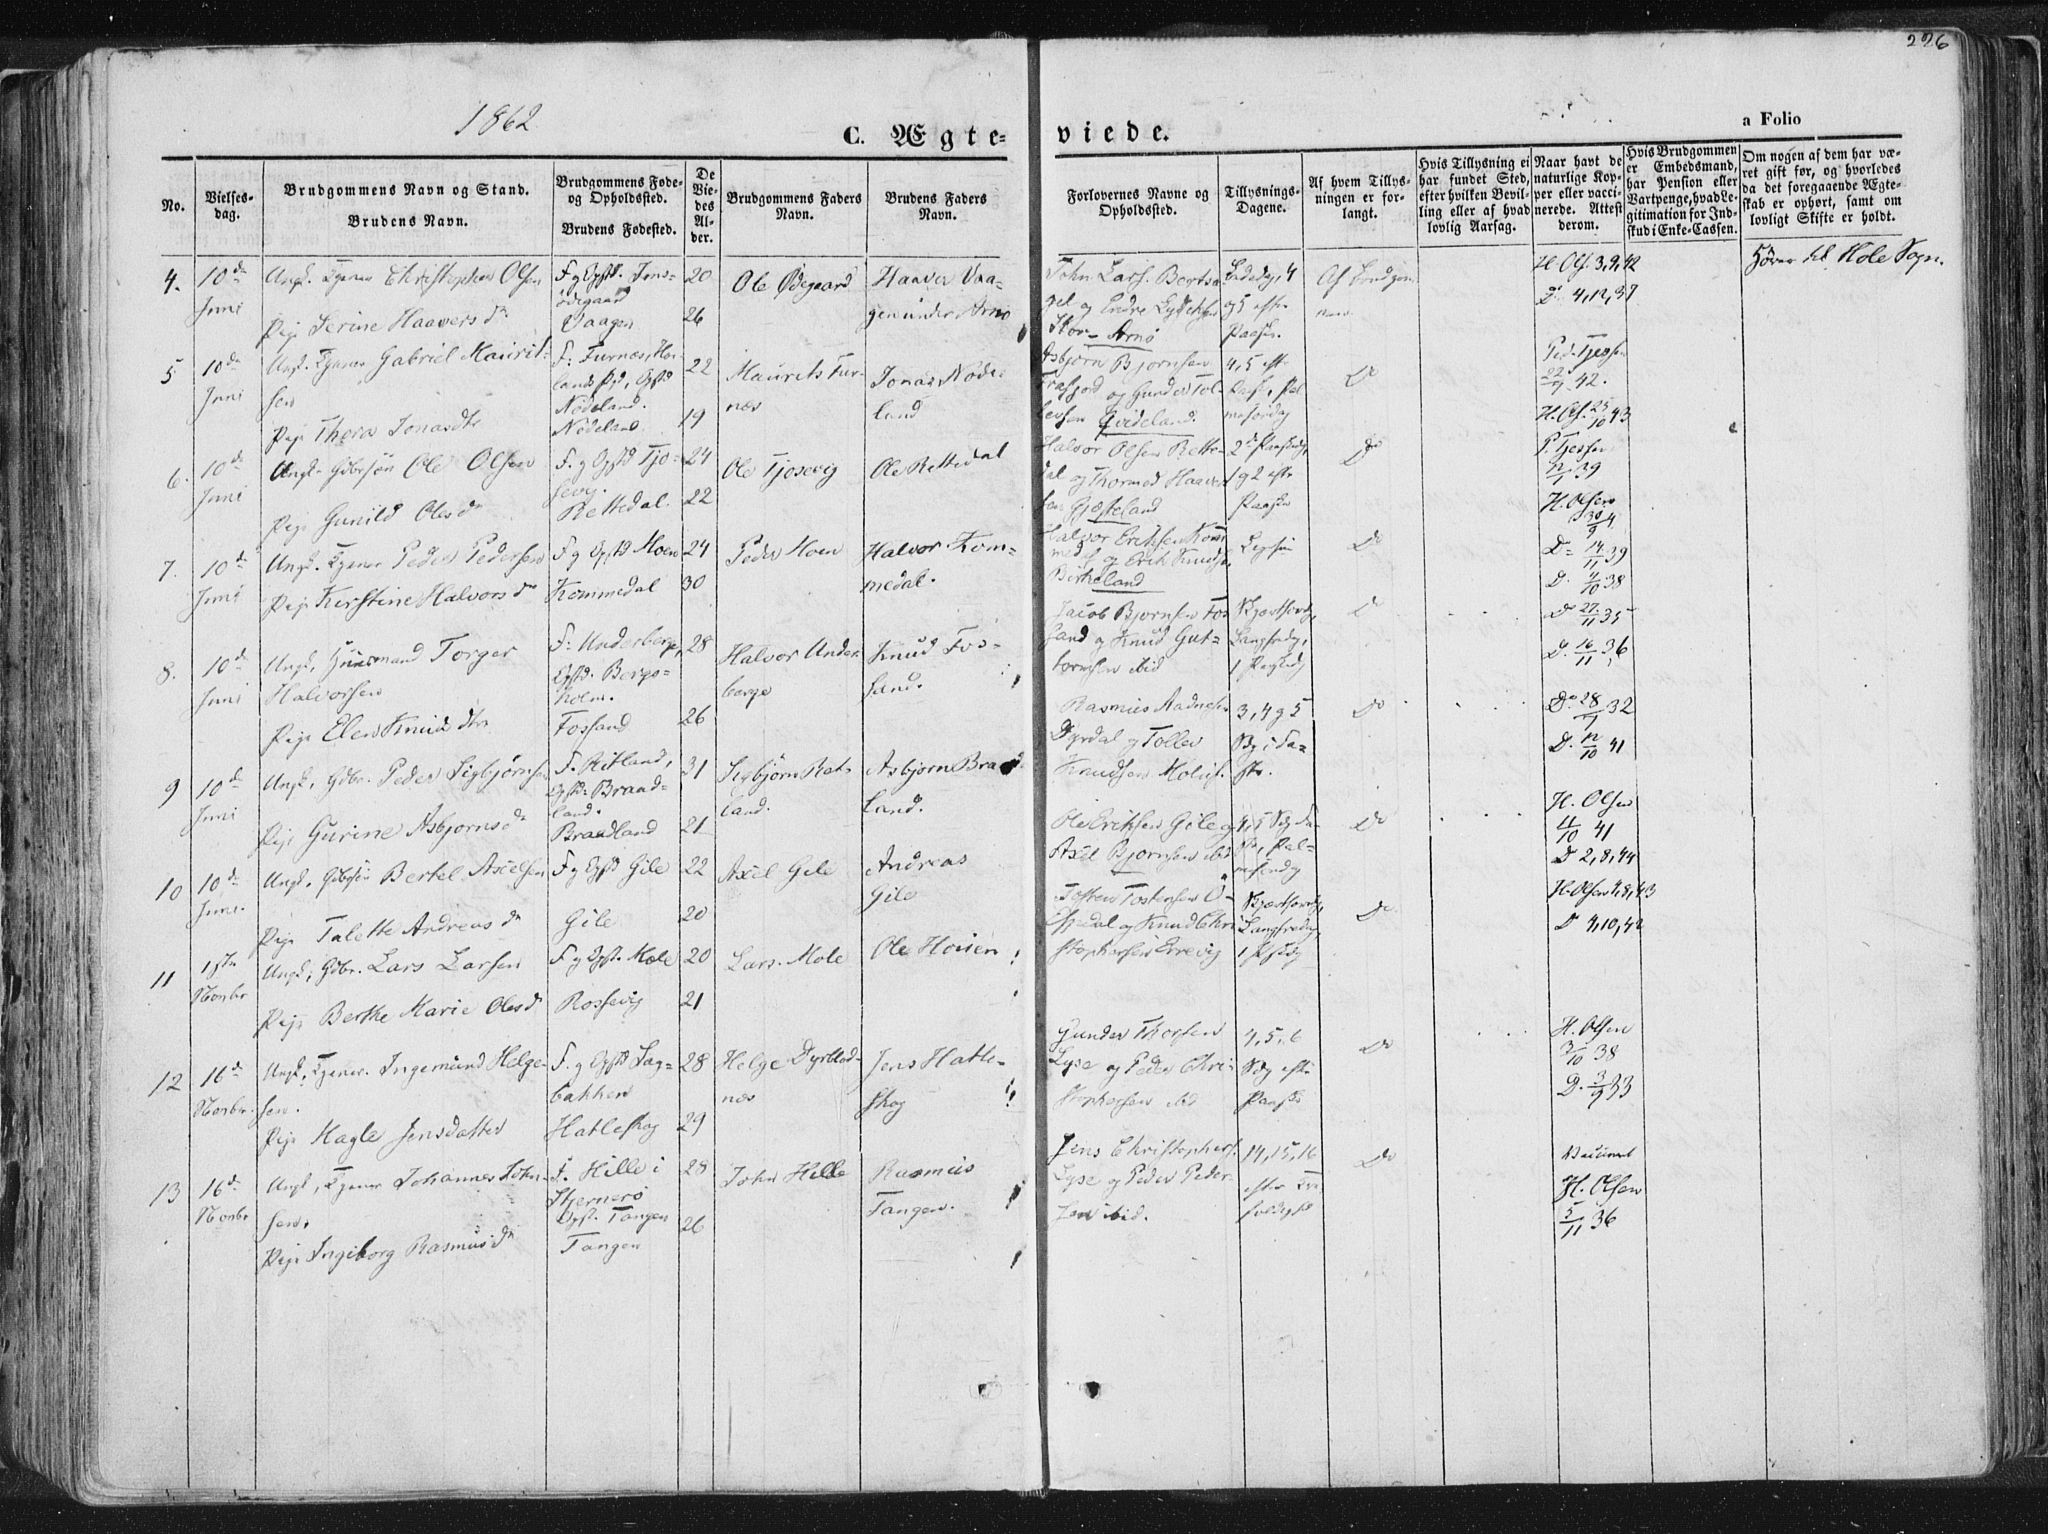 226
1862
C. Ægteviede.
a Folio
No.
Vielsesdag.
Brudgommens Navn og Stand.
Brudens Navn.
Brudgommens Føde- og Opholdssted.
Brudens Fødested.
De Viedes Alder.
Brudgommens Faders Navn.
Brudens Faders Navn.
Forlovernes Navne og Opholdssted.
Tillysnings-Dagene.
Af hvem Tillysningen er forlangt.
Hvis Tillysning ei har fundet Sted, efter hvilken Bevilling eller af hvad lovlig Aarsag.
Naar havt de naturlige Kopper eller vaccinerede. Attest derom.
Hvis Brudgommen er Embedsmand, har Pension eller Vartpenge, hvad Legitimation for Indskud i Enke-Cassen.
Om nogen af dem har været gift før, og hvorledes da det foregaaende Ægteskab er ophørt, samt om lovligt Skifte er holdt.
4.
10de Juni
Ungk. Tjener Christopher Olsen
Pige Serine Haaversdtr
Ødegaard
Vaagen
20
26
Ole Ødegaard
Haaver Vaagen under Arnø
John Lars.
og Endre
Stor-Arnø
4 og 5 efter Paaske.
H. Ols. 3,9,42
D. 4,12,37
Hører til Hole Sogn.
5
10de Juni
Ungk. Tjener Gabriel Mauritsen
Pige Thora Jonasdtr
F. Furnæs, Opst. Nødeland.
Nødeland
22
19
Maurits Furnæs
Jonas Nødeland
Asbjørn Bjørnsen Frafjord og Gunder Tollevsen Qvideland.
4, 5 eft. Pask, Palmesøndag
Do
22/7 42.
H. Ols. 25/10 43
6.
10de Juni
Ungk. Gbrsøn Ole Olsen
Pige Gunild Olesdr
F. og Opst Tjosevig.
Rettedal.
24
22
Ole Tjosevig
Ole Rettedal
Halvor Olsen Rettedal og Thormod Haaversen Gjæsteland
2den Paaskedag, 1 og 2 efter Paaske
Do
H. Olsen
7.
10de Juni
Ungk. Tjener Peder Pedersen
Pige Kirstine Halvorsdr
F og Opst Moen
Kommedal
24
30
Peder Moen
Halvor Kommedal.
Halvor Eriksen Kommedal og Erik Knudsen Birkeland
Do
D. 14/11 39
D. 4/10 38
8.
10de Juni
Ungk. Huusmand Torger Halvorsen
Pige Elen Knudsdtr
F. Underberge, Opst. Bergsholm.
Fossand
28
26
Halvor Underberge
Knud Fossand.
Jacob Bjørnsen Fossand og Knud Guttormsen ibid
Do
D. 27/11 35
D. 16/11 36
9
10de Juni
Ungk. Gbr. Peder Sigbjørnsen
Pige Gurine Asbjørnsdr
F. Ritland, Opst. Braadland.
Braadland
31
21
Sigbjørn Ratland.
Asbjørn Braadland.
Rasmus Aadnesen Dyrdal og Tollev Knudsen
3, 4 og 5 Sdg i Faste.
Do
D. 28/7 32
D. 12/10 41
10
10de Juni.
Ungk. Gbrsøn Bertel Axelsen
Pige Talette Andreasdr
F og Opst Gile
Gile
22
20
Axel Gile
Andreas Gile
Ole Eriksen Gile og Axel Bjørnsen ibid
4, 5 Sdg Faste, Palmesøndag
Do
H. Olsen 11/10 41
D 2,8,44
11
1ste Novbr
Ungk. Gbr. Lars Larsen
Pige Berthe Marie Olesdr
F og Opst. Mæle
Rossevig
20
21
Lars Mole
Ole Houen
Tosten Tostensen og Knud Christophersen Errevig
Do
H. Olsen 4,8,43
D 4,10,42
12
16de Novbr.
Ungk. Tjener. Ingemund Helgesen.
Pige Magle Jensdatter
F. og Opst Sagbakken
Hatleskog
28
29
Helge Dyrlodnæs
Jens Hatleskog
Gunder Thorsen Lyse og Peder Christophersen ibid
4, 5, 6 Sdg efter Paaske
Do
H. Olsen
3/10 38
D. 3/9 33
13
16de Novbr
Ungk. Tjener Johannes Johnsen.
Pige Ingeborg Rasmusdr
F. Hille i Stjernerø Opst. Tangen
Tangen
28
26
John Helle
Rasmus Tangen.
Jens Christophers. Lyse og Peder Pedersen ibid.
14, 15, 16 efter Trefoldighd
Do
Vaccineret
H. Olsen
5/11 36